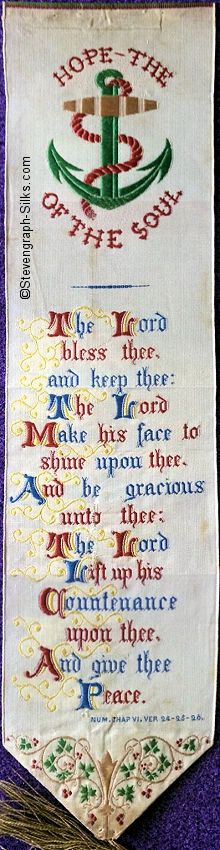 HOPE-THE
OF THE SOUL
The Lord
bless thee.
and keep thee:
The Lord
Make his face to
shine upon thee.
And be gracious
unto thee:
The Lord
Lift up his
Countenance
upon thee.
And give thee
Peace.
NUM. CHAP VI. VER 24-25-26.
©Stevengraph-Silks.com